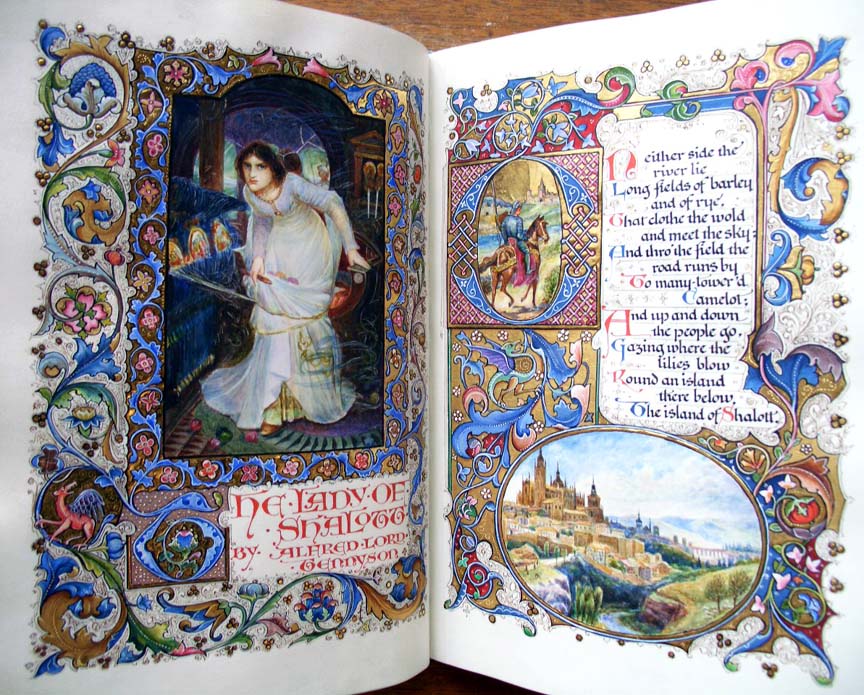 THE·LADY·OF
SHALOTT
BY·ALFRED·LORD
TENNYSON
ON either side the
river lie
Long fields of barley
and of rye,
That clothe the wold
and meet the sky;
And thro' the field the
road runs by
To many-tower'd
Camelot;
And up and down
the people go,
Gazing where the
lilies blow
Round an island
there below,
The island of Shalott.